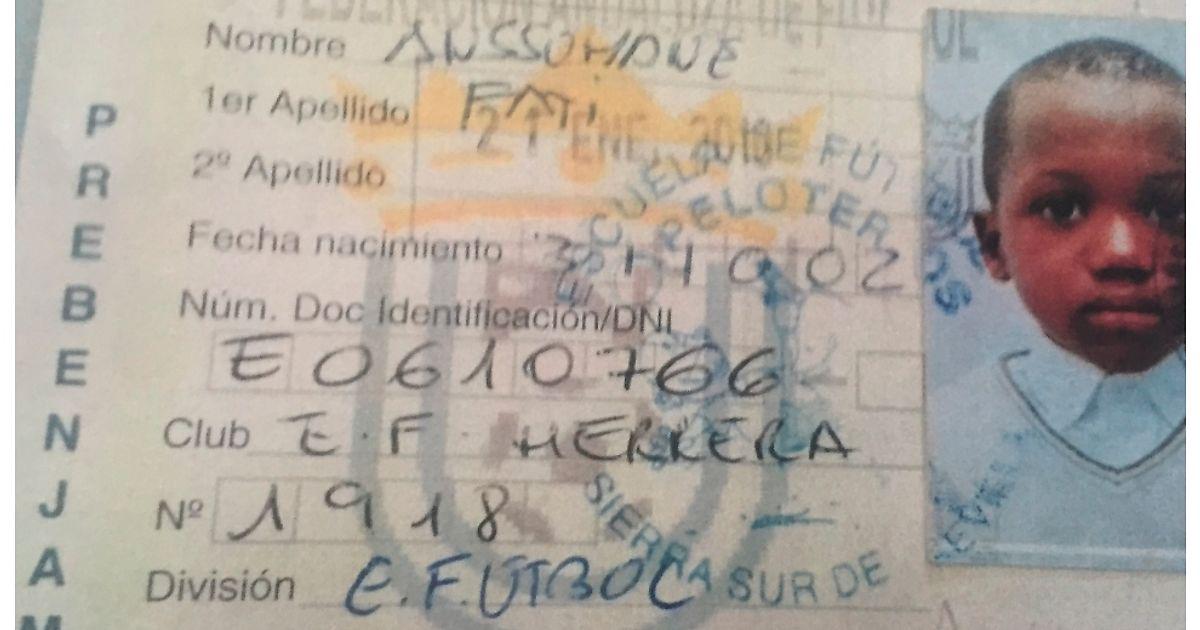 FEDERACIÓN ANDALUZA DE FÚTBOL
Nombre ANSSUMANE
1er Apellido FATI
21 ENE. 2010
2º Apellido
ESCUELA DE FÚT
PELOTEROS
Fecha nacimiento 31 10 02
Núm. Doc Identificación/DNI
E0610766
Club E.F. HERRERA
Nº 1918
SIERRA SUR DE
División E. FUTBOL
PREBENJAM